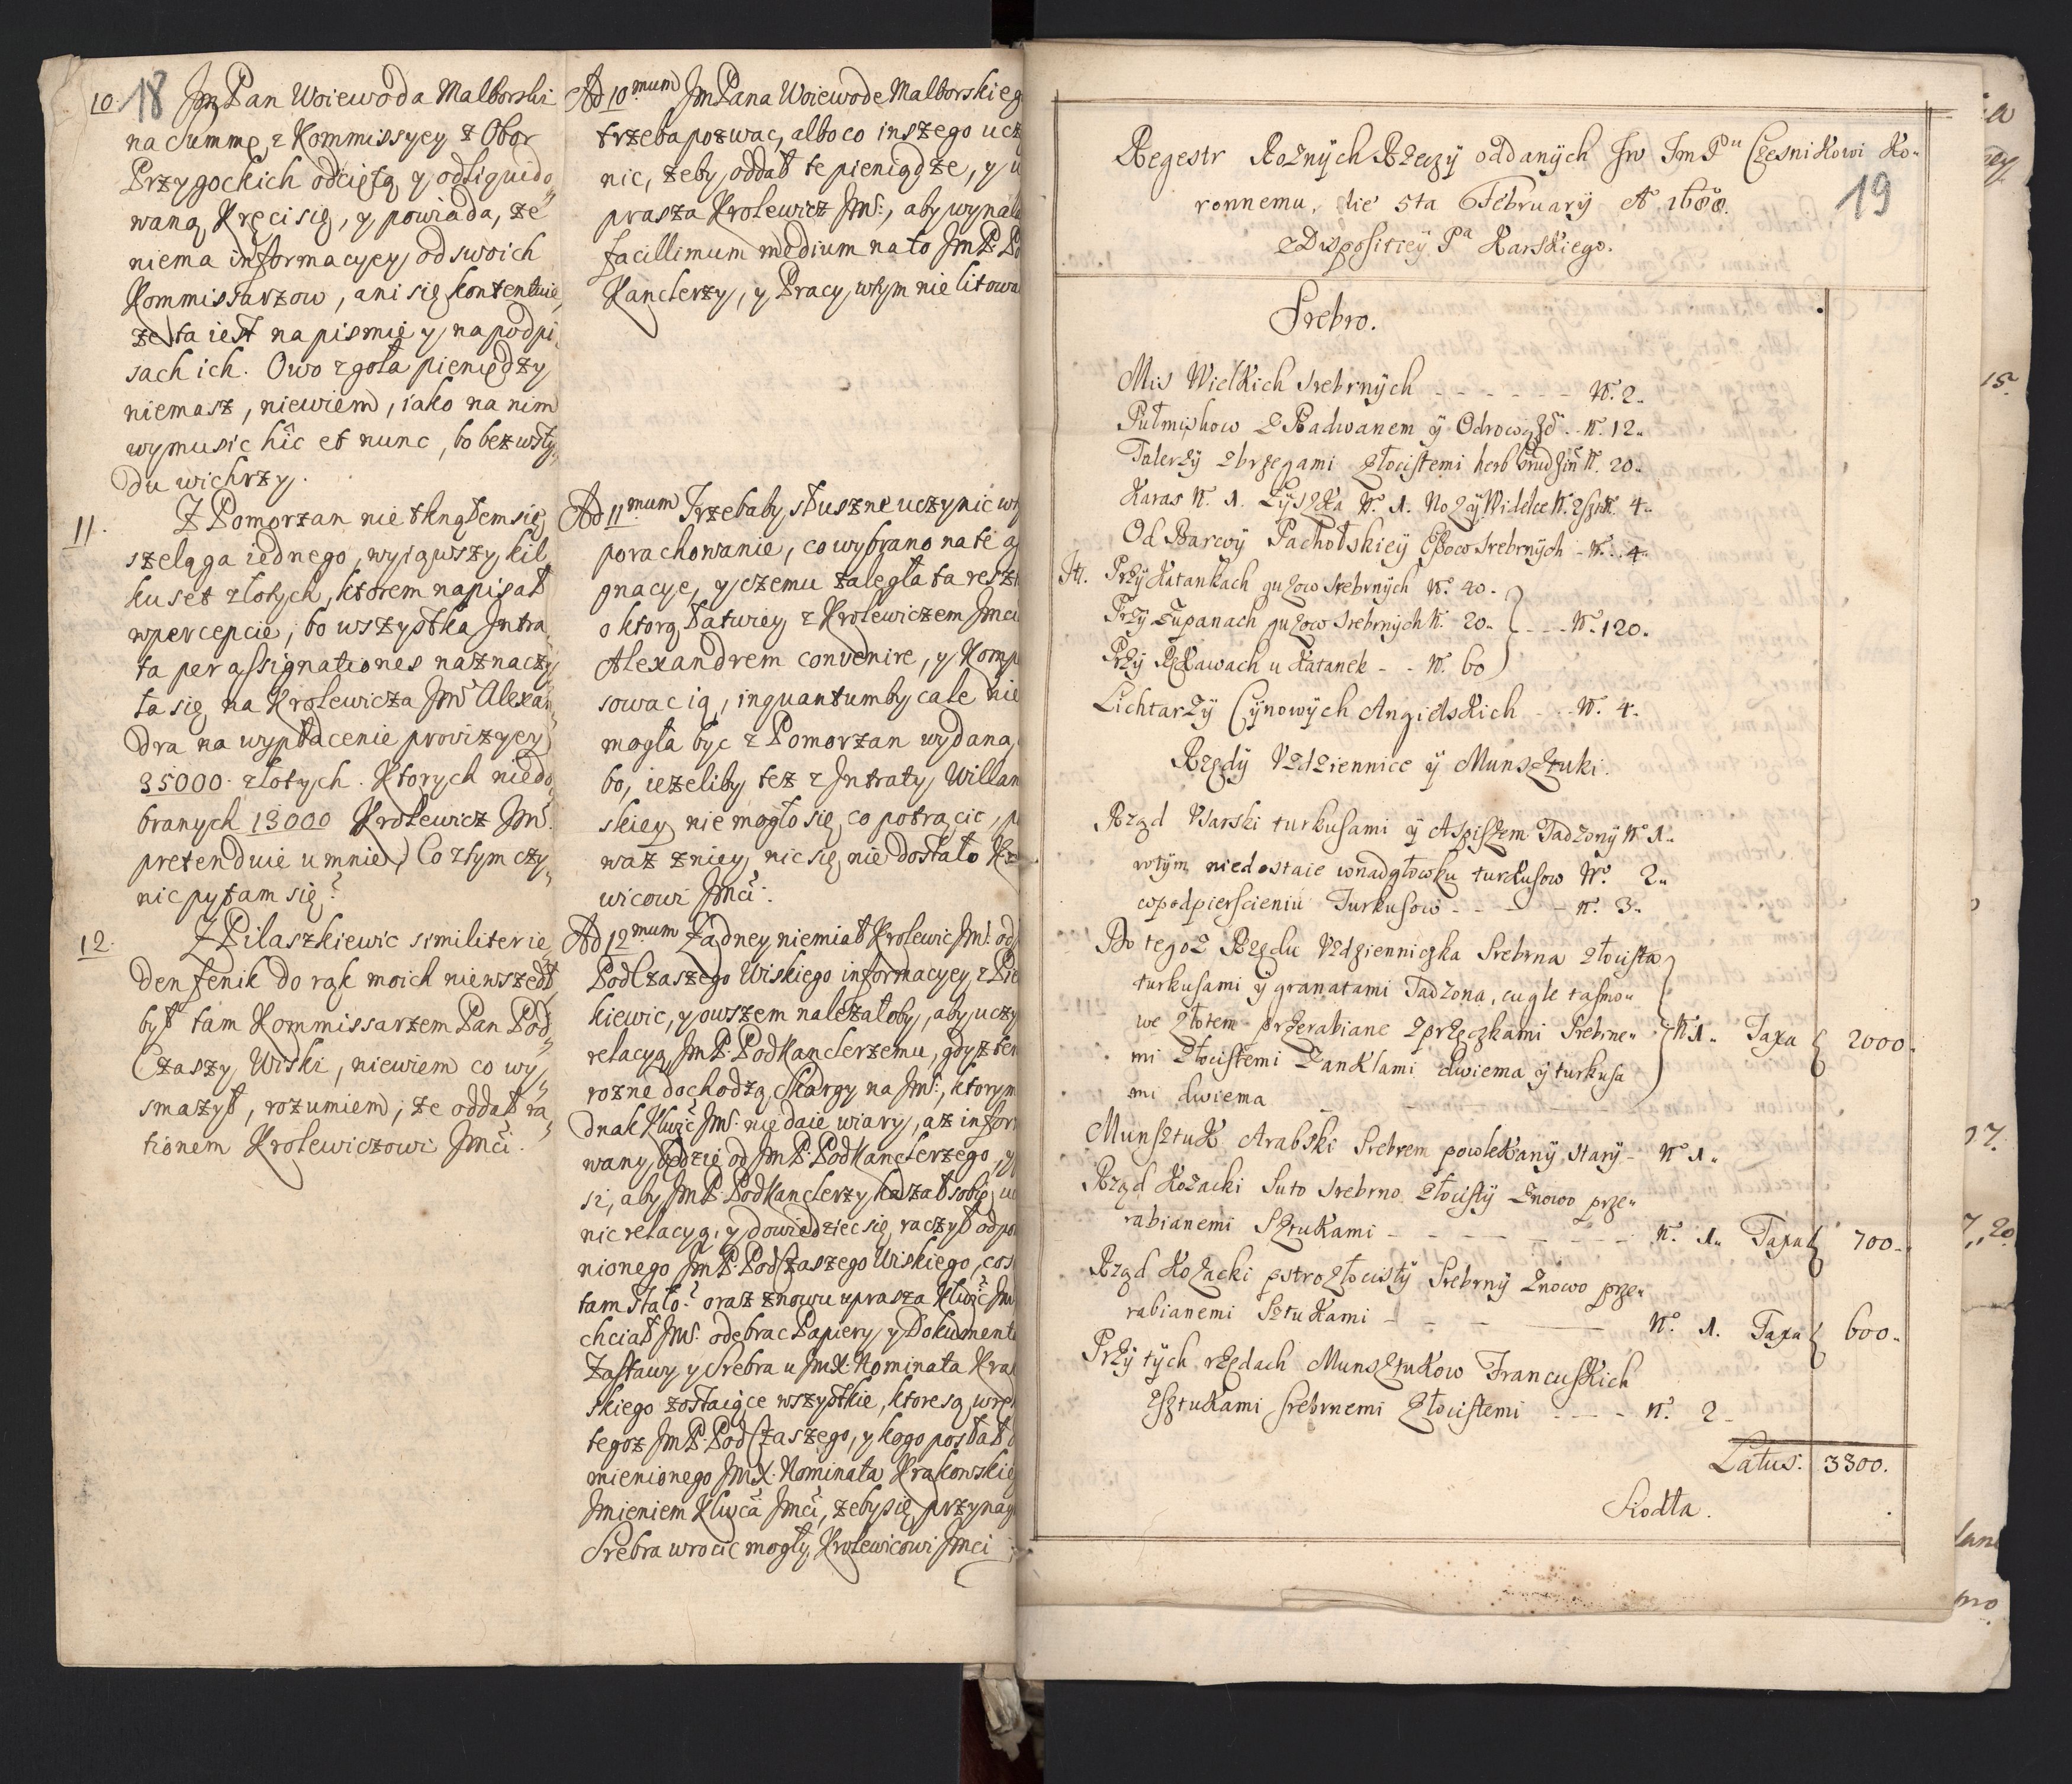 18
10. Jm Pan Woiewoda Malborski
na summę, z Kommissyey z Obor
Przygockich odciętą y odliquido„
waną Kręci się, y powiada, że
niema informacyey od swoich
Kommissarzow, ani się kontentuie,
że ta iest na pismie y na podpi„
sach ich. Owo zgoła pieniędzy
niemasz, niewiem, iako na nim
wymusic hîc et nunc, bo bez wsty„
du wichrzy.
11. Z Pomorzan nie tknąłem się
szeląga iednego, wyiąwszy kil„
kuset złotych, ktorem napisał
w percepcie; bo wszystka Intra„
ta per assignationes naznaczy„
ła się na Krolewicza Jmś Alexan„
dra na wypłacenie prowizyey
35000 złotych. Ktorych niedo„
branych 13000 Krolewicz Jmś.
pretenduie u mnie, Co z tym czy„
nic pytam się?
12. Z Pilaszkiewic similiter ie„
den fenik do rąk moich niewszedł,
był tam Kommissarzem Pan Pod„
Czaszy Wiski, niewiem co wy„
smażył, rozumiem, że oddał ra„
tionem Krolewiczowi Jmći.
Ad 10mum Jm Pana Woiewode Malborskieg
trzeba pozwac, albo co inszego ucz
nic, żeby oddał te pieniądze, y u
prasza Krolewicz Jmś:, aby wynala
facillimum medium na to Jm P. Po
Kanclerzy, y Pracy w tym nie litowa
Ad 11mum Trzebaby słuszne uczynic wty
porachowanie, co wybrano na te as
gnacye, y czemu zaległa ta reszt
o ktorą łatwiey z Krolewiczem Jmci
Alexandrem convenire, y Komp
sowac ią, inquantumby cale nie
mogła byc z Pomorzan wydana,
bo, ieżeliby też z Intraty Willan
skiey nie mogło się co potrącic, p
waż z niey nic się nie dostało Kr
wicowi Jmći.
Ad 12mum Żadney niemiał Krolewic Jmś. od
PodCzaszego Wiskiego informacyey z Pie
kiewic, y owszem należałoby, aby uczy
relacyą Jm P. PodKanclerzemu, gdyż ter
rozne dochodzą Skargy na Jmś:, ktorym
dnak Klwic Jmś. nie daie wiary, aż infor
wany będzie od Jm P. PodKanclerzego, y
si, aby Jm P. PodKanclerzy kazał sobie uc
nic relacyą, y dowiedziec się raczył odpo
nionego Jm P. PodCzaszego Wiskiego, cos
tam stało? oraz znowu uprasza Klwic Jm
chciał Jmś. odebrac Papiery, y Dokumenta
Zastawy y Srebra u JmX. Nominata Kra
skiego zostaiące wszystkie, ktore są w rę
tegoz Jm P. PodCzaszego, y kogo posłał d
mienionego JmX. Nominata Krakowskie
Imieniem Klwca Jmći, żeby się przynay
Srebra wrocic mogły Krolewicowi Jmci
19
Regestr Rożnÿch Rzeczÿ oddanÿch Jw Jm Pu Czesnikowi Ko„
ronnemu, die 5ta Februarÿ A 1688.
z Dispositieÿ Pa Karskiego.
Srebro.
Mis Wielkich Srebrnÿch - - - - - - N. 2„
Pułmiskow z Radwanem ÿ Odrowąże . N. 12„
Talerzÿ zbrzegami złocistemi herb Grudziń N. 20„
Karas N. 1. Łÿszka N. 1. Nożÿ Widelce N. 2 sztk. 4„
Od Barwÿ Pachołskieÿ Cÿbow Srebrnÿch - N. 4„
It. Przÿ Katankach guzow Srebrnÿch N. 40„
Przÿ Żupanach guzow Srebrnÿch N. 20„ - - - - N. 120.
Przÿ Rękawach u Katanek - - N. 60
Lichtarzÿ Cÿnowÿch Angielskich - - - N. 4.
Rzędÿ Uzdziennice ÿ Munsztuki.
Rząd Usarski turkusami ÿ Aspisem Sadzonÿ N. 1„
w tÿm niedostaie w nadgłowku turkusow N. 2„
w podpierscieniu Turkusow - - - - N. 3„
Do tegoż Rzędu Uzdzienniczka Srebrna złocista
turkusami ÿ granatami Sadzona, cugle tasmo„
we złotem przerabiane zprzęczkami Srebrne„ N. 1„ Taxa 2000„
mi złocistemi Zanklami dwiema ÿ turkusa
mi dwiema
Munsztuk Arabski Srebrem powlekanÿ starÿ - N. 1„
Rząd Kozacki Suto Srebrno złocistÿ znowo prze„
rabianemi Sztukami - - - - - - N. 1„ Taxa 700„
Rząd Kozacki pstro złocistÿ Srebrnÿ znowo prze„
rabianemi Sztukami - - - - - N. 1. Taxa 600„
Przÿ tÿch rzędach Munsztukow Francuskich
z sztukami Srebrnemi złocistemi - - - - N. 2 -
Latus. 3300.
Siodła.